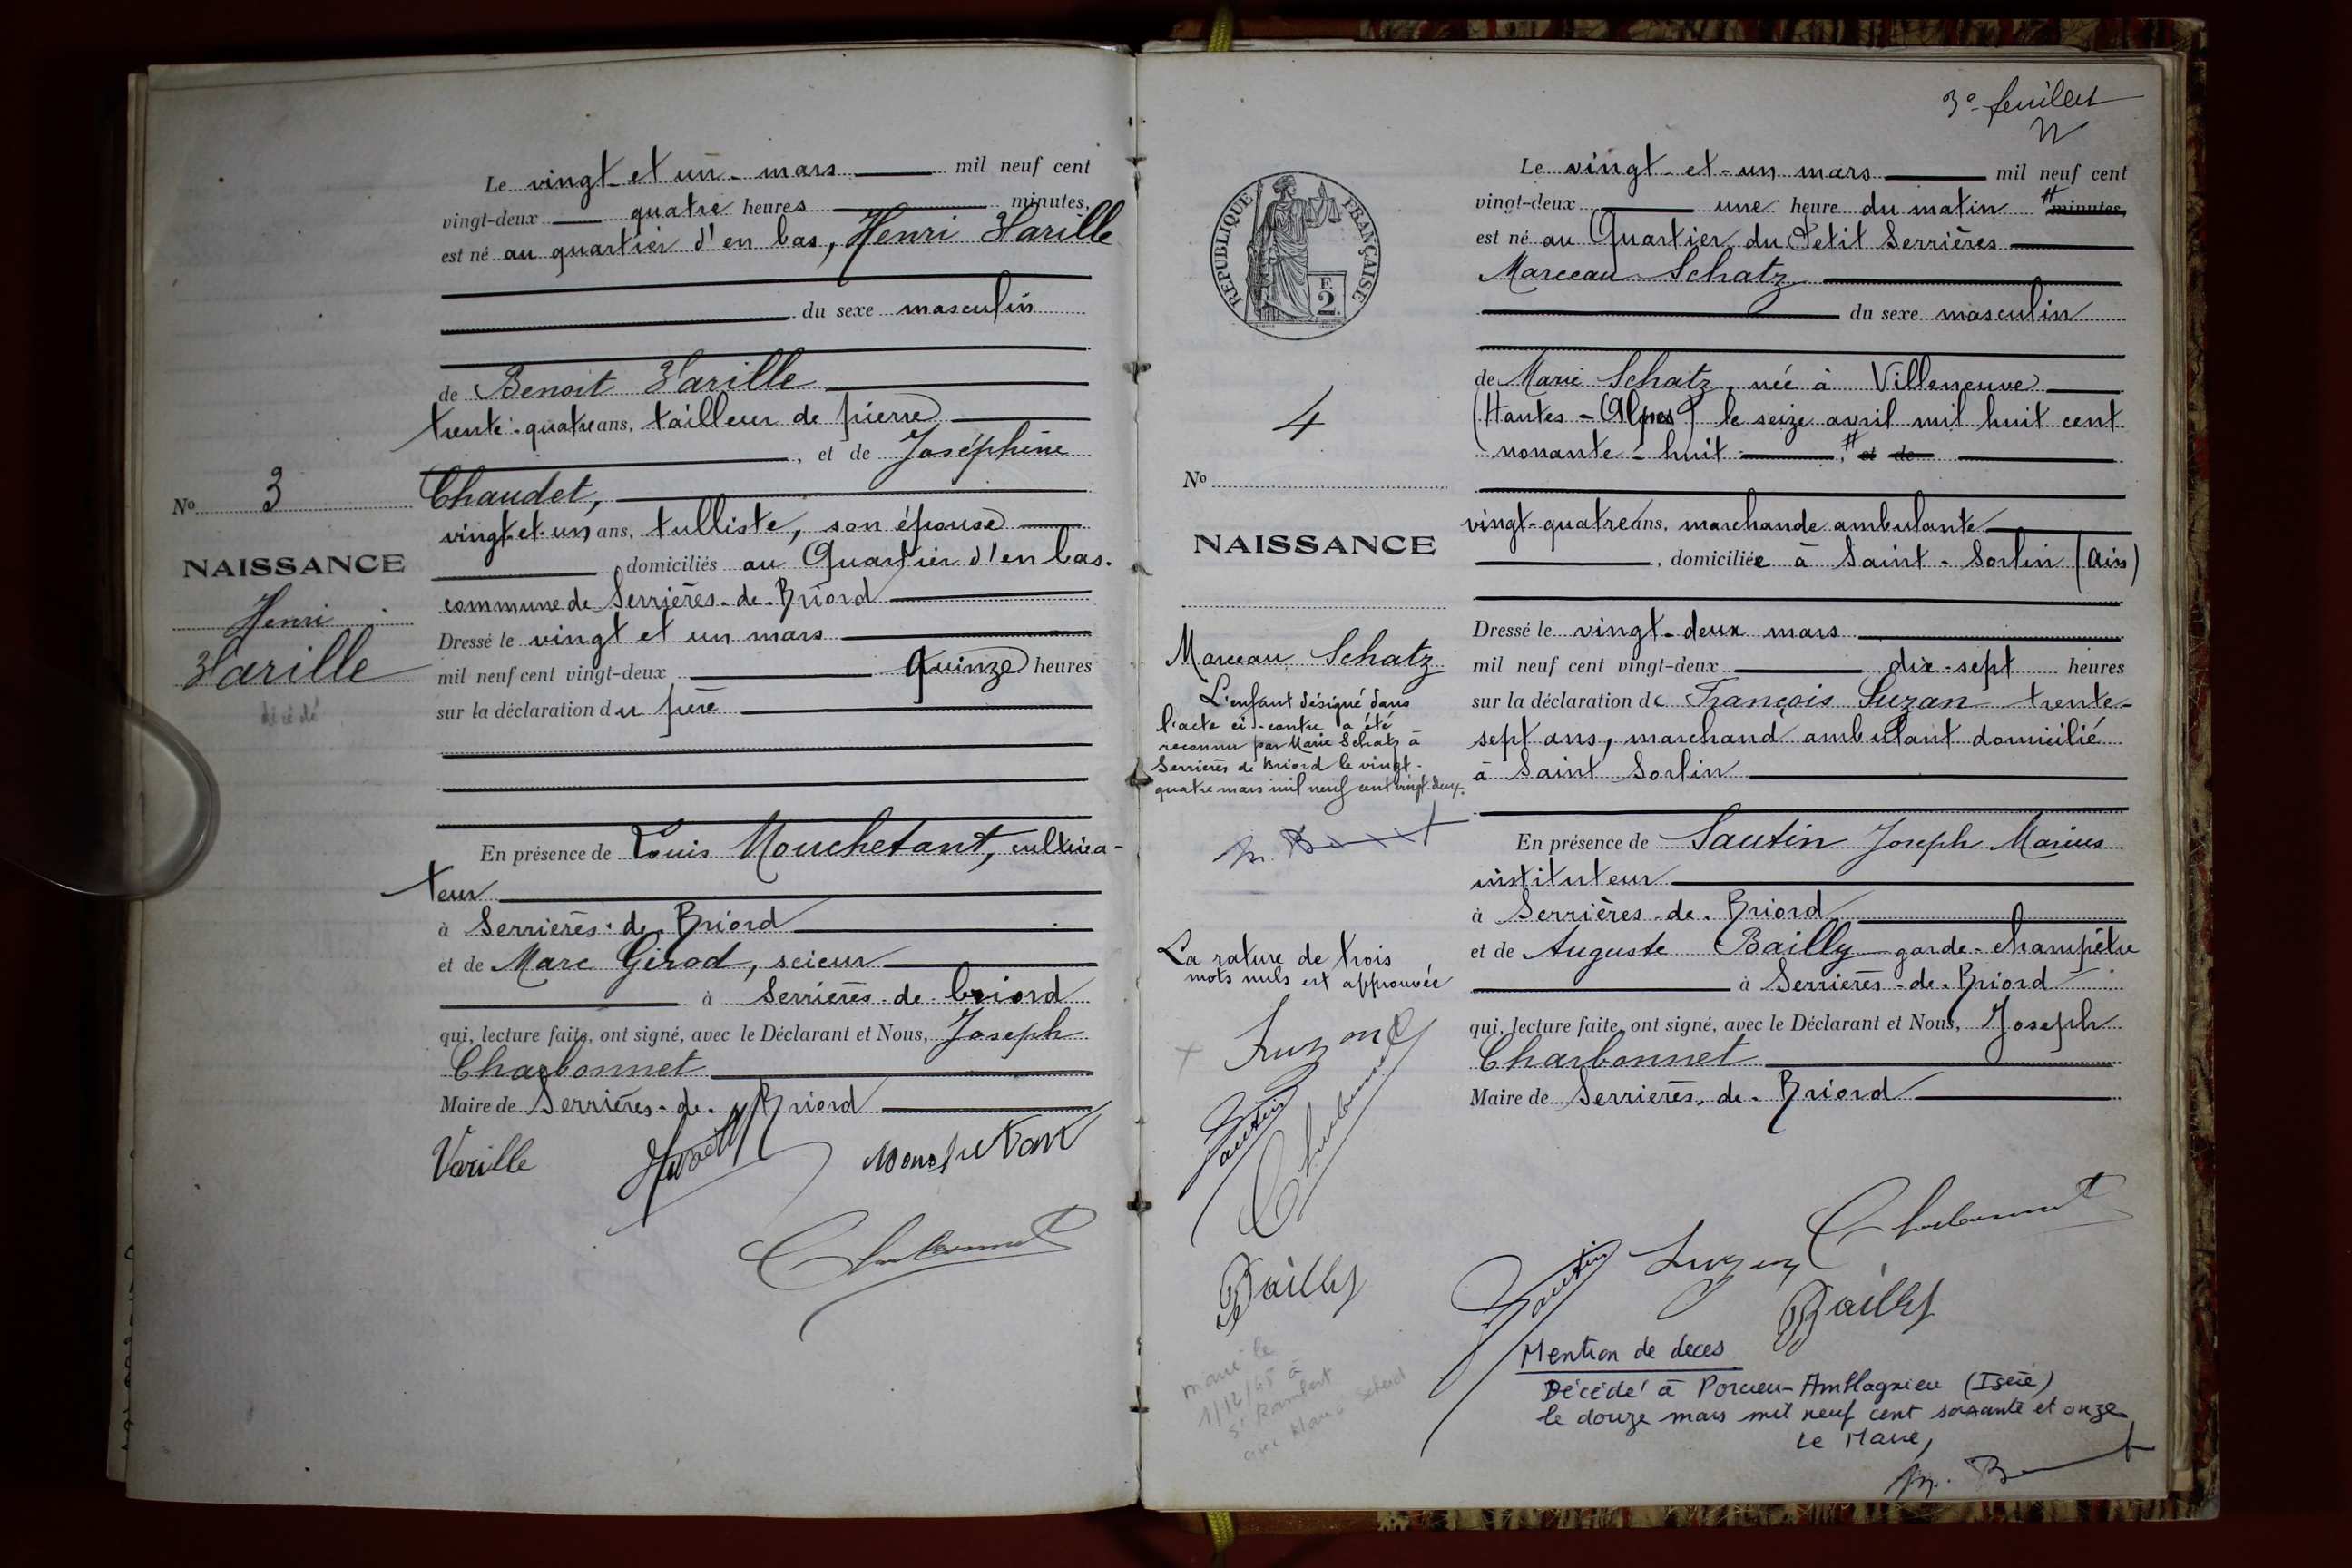 Le vingt et un mars mil neuf cent
vingt-deux quatre heures minutes,
est né au quartier d'en bas, Henri Varille
du sexe masculin
de Benoit Varille
trente-quatre ans, tailleur de pierre
, et de Joséphine
Chaudet,
vingt-et-un ans, tulliste, son épouse
domiciliés au Quartier d'en bas.
commune de Serrières-de-Briord
Dressé le vingt et un mars
mil neuf cent vingt-deux quinze heures
sur la déclaration du père
En présence de Louis Mouchetant, cultiva-
teur
à Serrières-de-Briord
et de Marc Girod, scieur
à Serrières-de-briord
qui, lecture faite, ont signé, avec le Déclarant et Nous, Joseph
Charbonnet
Maire de Serrières-de-Briord
Varille Mouchetant
Charbonnet
No 3
NAISSANCE
Henri
Varille
décédé
3e feuillet
RÉPUBLIQUE FRANÇAISE
F.
2
4
No
NAISSANCE
Marceau Schatz
L'enfant désigné dans
l'acte ci-contre a été
reconnu par Marie Schatz à
Serrières de Briord le vingt-
quatre mars mil neuf cent vingt-deux.
La rature de trois
mots nuls est approuvée
Sautin
Charbonnet
Bailly
marié le
1/12/45 à
St Rambert
avec
Le vingt-et-un mars mil neuf cent
vingt-deux une heure du matin # minutes,
est né au Quartier du Petit Serrières
Marceau Schatz
du sexe masculin
de Marie Schatz, née à Villeneuve
(Hautes-Alpes) le seize avril mil huit cent
nonante-huit, # et de
vingt-quatre ans, marchande ambulante
, domiciliée à Saint-Sorlin (Ain)
Dressé le vingt-deux mars
mil neuf cent vingt-deux dix-sept heures
sur la déclaration de François Suzan trente-
sept ans, marchand ambulant domicilié
à Saint Sorlin
En présence de Sautin Joseph Marius
instituteur
à Serrières-de-Briord
et de Auguste Bailly garde-champêtre
à Serrières-de-Briord
qui, lecture faite, ont signé, avec le Déclarant et Nous, Joseph
Charbonnet
Maire de Serrières-de-Briord
Sautin Charbonnet
Bailly
Mention de deces
Décédé à Porcieu-Amblagnieu (Isère)
le douze mars mil neuf cent soixante et onze
Le Maire,